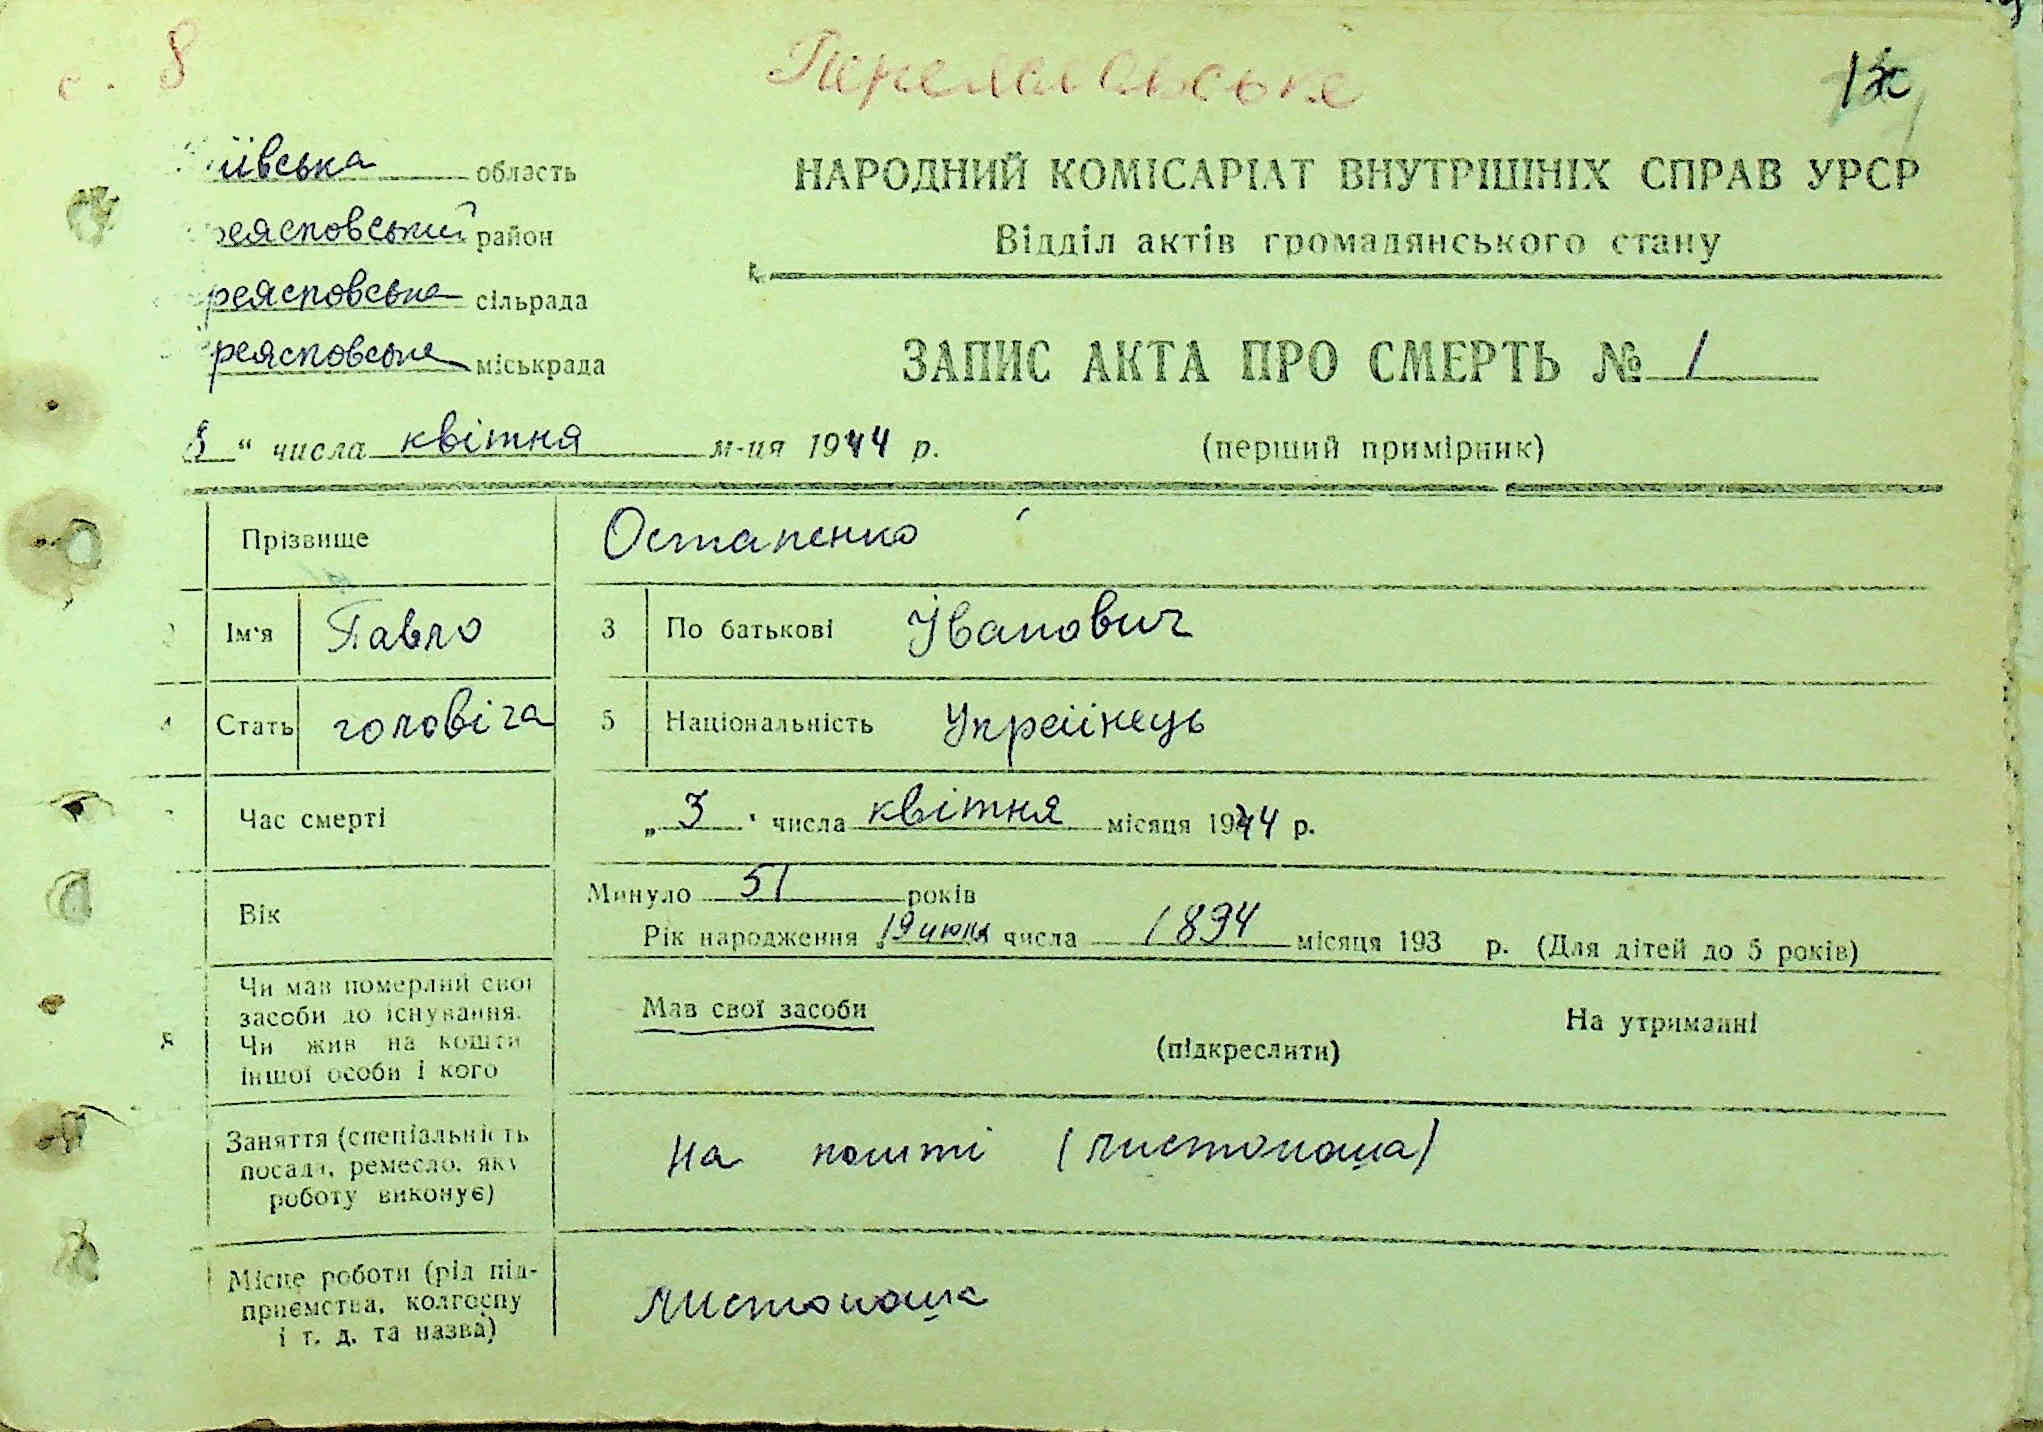 с. 8
Переяславське
НАРОДНИЙ КОМІСАРІАТ ВНУТРІШНІХ СПРАВ УРСР
Відділ актів громадянського стану
иївська область
реяславський район
реяславська сільрада
реяславська міськрада
ЗАПИС АКТА ПРО СМЕРТЬ № 1
(перший примірник)
8 " числа квітня м-ця 1944 р.
Прізвище Остапенко
Ім'я Павло 3 По батькові Іванович
4 Стать чоловіча 5 Національність Українець
Час смерті „ 3 " числа квітня місяця 1944 р.
Вік Минуло 51 років
Рік народження „19 июня числа 1894 місяця 193 р. (Для дітей до 5 років)
Чи мав померлий свої засоби до існування.
Чи жив на кошти іншої особи і кого
Мав свої засоби На утриманні
(підкреслити)
Заняття (спеціальність
посада, ремесло, яку
роботу виконує)
на пошті (листоноша)
Місце роботи (рід під-
приємства, колгоспу
і т. д. та назва)
листоноша